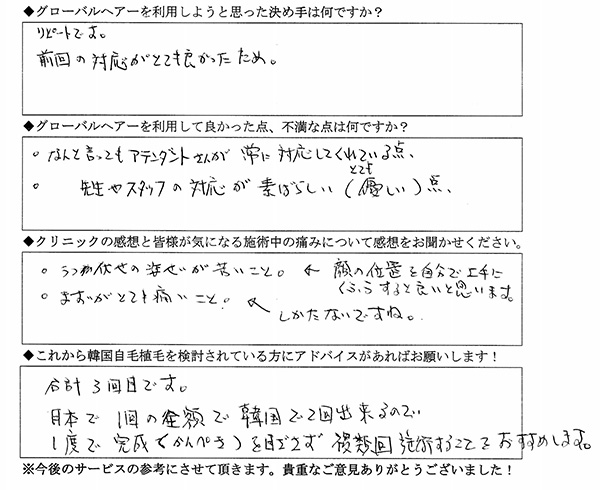 ◆グローバルヘアーを利用しようと思った決め手は何ですか？
リピートです。
前回の対応がとても良かったため。
◆グローバルヘアーを利用して良かった点、不満な点は何ですか？
○ なんと言ってもアテンダントさんが 常に対応してくれている点、
とても
○ 先生やスタッフの対応が素ばらしい(優しい)点、
◆クリニックの感想と皆様が気になる施術中の痛みについて感想をお聞かせください。
○ うつぶ伏せの姿せいが苦しいこと。 ← 顔の位置を自分で上手に
くふうすると良いと思います。
○ ますいがとても痛いこと。 ←
しかたないですね。
◆これから韓国自毛植毛を検討されている方にアドバイスがあればお願いします！
合計3回目です。
日本で1回の金額で韓国で2回出来るので
1度で完成(かんぺき)を目ざさず 複数回施術することをおすすめします。
※今後のサービスの参考にさせて頂きます。貴重なご意見ありがとうございました！